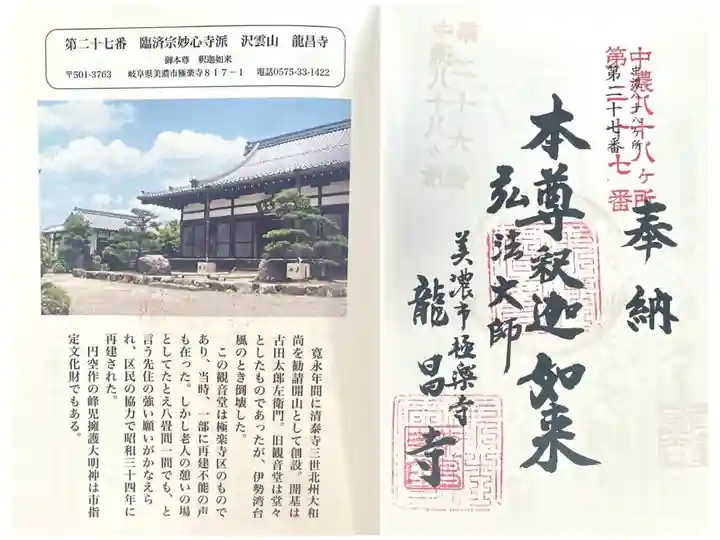 第二十七番　臨済宗妙心寺派　沢雲山　龍昌寺
御本尊　釈迦如来
〒501-3763　岐阜県美濃市極楽寺817-1　電話0575-33-1422
寛永年間に清泰寺三世北州大和
尚を勧請開山として創設。開基は
古田太郎左衛門。旧観音堂は堂々
としたものであったが、伊勢湾台
風のとき倒壊した。
この観音堂は極楽寺区のもので
あり、当時、一部に再建不能の声
も在った。しかし老人の憩いの場
としてたとえ八畳間一間でも、と
言う先住の強い願いがかなえら
れ、区民の協力で昭和三十四年に
再建された。
円空作の峰児擁護大明神は市指
定文化財でもある。
中濃八十八ヶ所
第二十七番
第二十七番
奉納
本尊釈迦如来
弘法大師
美濃市極楽寺
龍昌寺